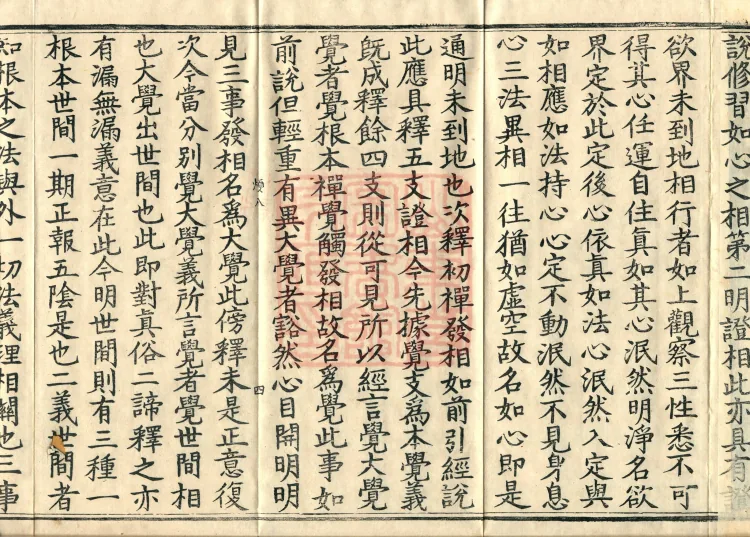 說修習如心之相第二明證相此亦具有證
欲界未到地相行者如上觀察三性悉不可
得其心任運自住真如其心泯然明淨名欲
界定於此定後心依真如法心泯然入定與
如相應如法持心心定不動泯然不見身息
心三法異相一往猶如虛空故名如心即是
通明未到地也次釋初禪發相如前引經說
此應具釋五支證相今先據覺支為本覺義
旣成釋餘四支則從可見所以經言覺大覺
覺者覺根本禪覺觸發相故名為覺此事如
前說但輕重有異大覺者豁然心目開明明
煩八 四
見三事發相名為大覺此傍釋未是正意復
次今當分别覺大覺義所言覺者覺世間相
也大覺出世間也此即對真俗二諦釋之亦
有漏無漏義意在此今明世間則有三種一
根本世間一期正報五陰是也二義世間者
知根本之法與外一切法義理相關也三事